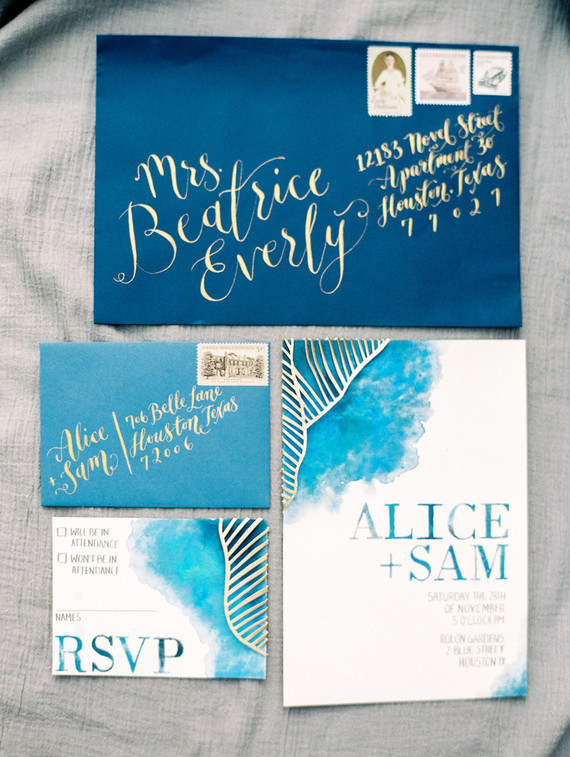 Mrs.
Beatrice
Everly
12183 Novel Street
Apartment 30
Houston, Texas
77027
Alice
+ Sam
706 Belle Lane
Houston, Texas
72006
WILL BE IN
ATTENDANCE
WON'T BE IN
ATTENDANCE
NAMES
RSVP
ALICE
+SAM
SATURDAY THE 28TH
OF NOVEMBER
5 O'CLOCK PM
ROLON GARDENS
2 BLUE STREET
HOUSTON